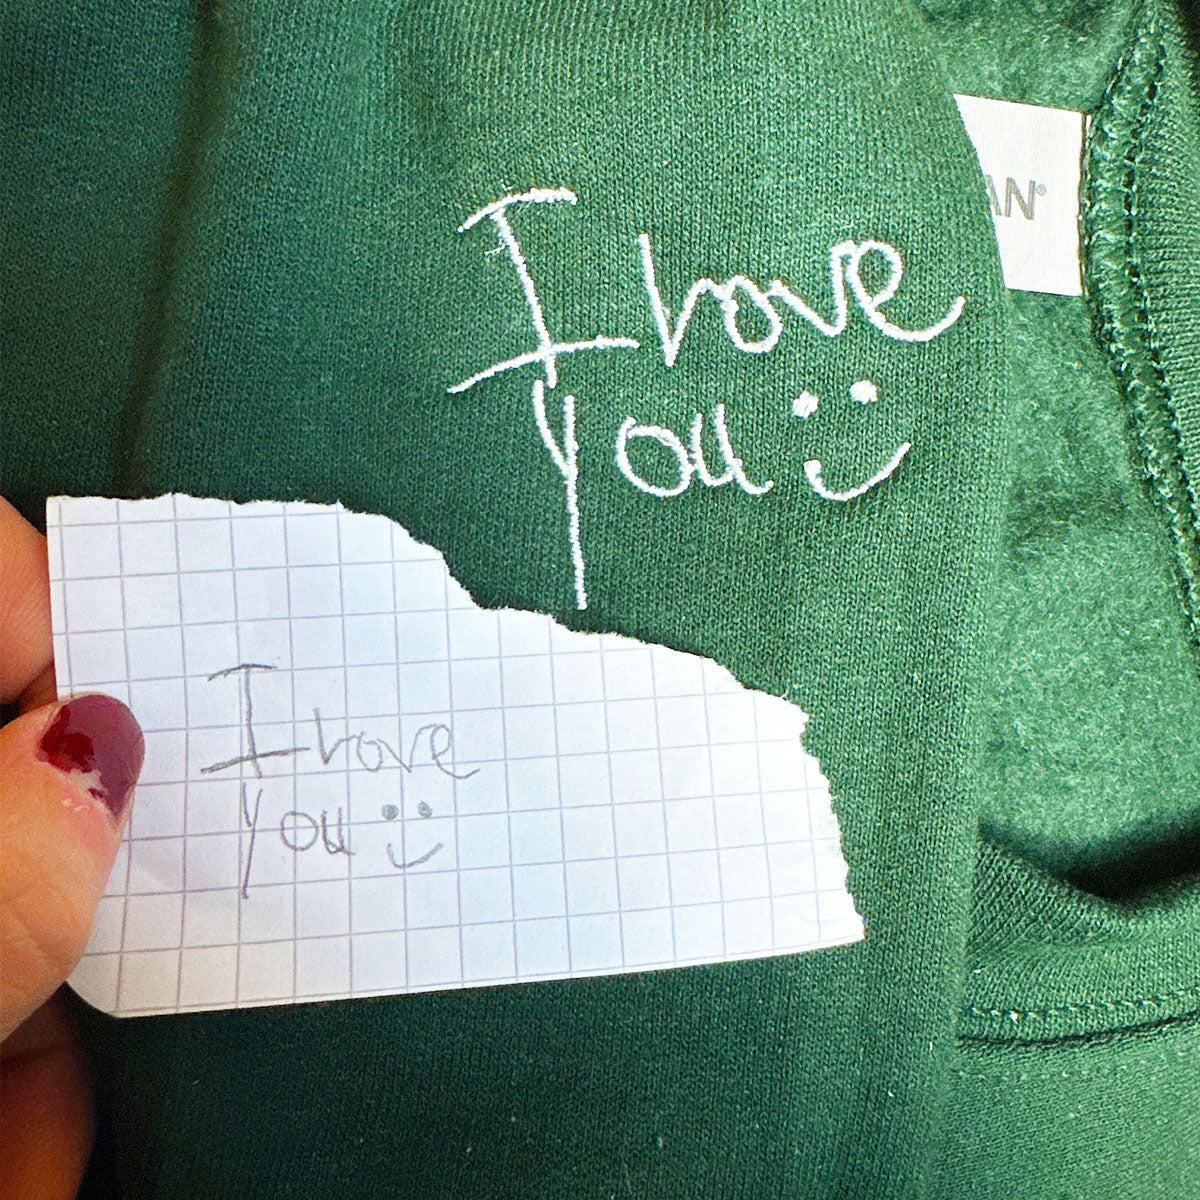 I love
You
AN®
I love
You